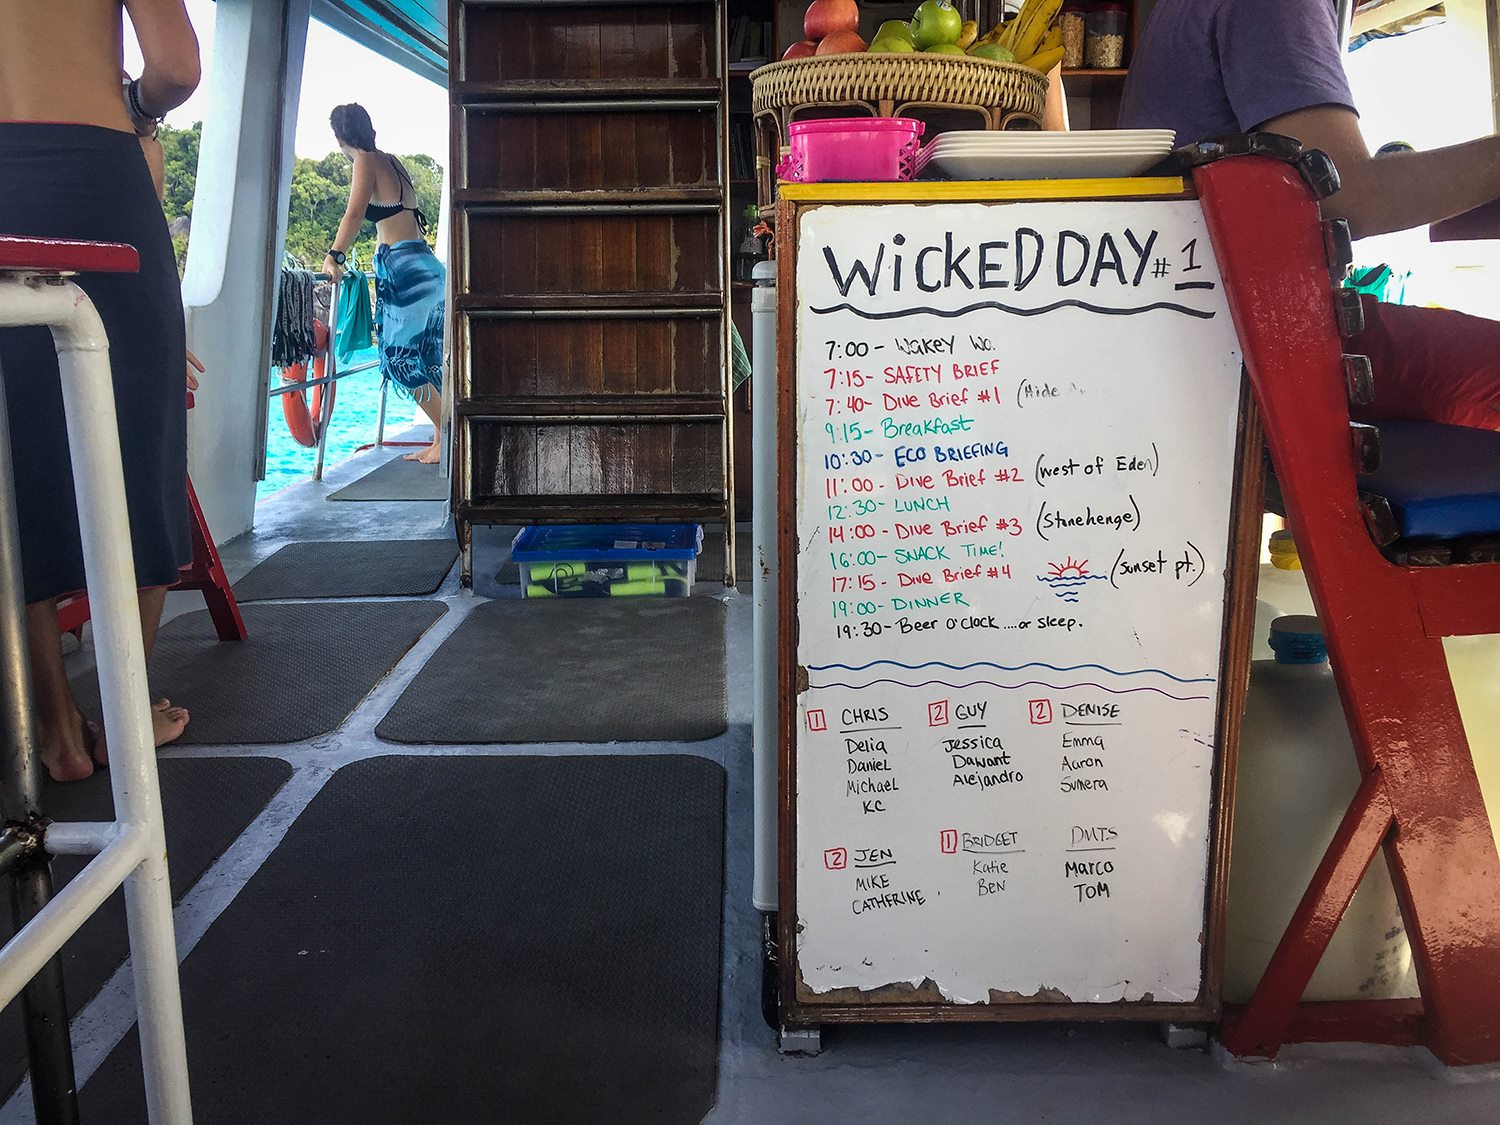 WickED DAY # 1
7:00 - Wakey Wa.
7:15 - SAFETY BRIEF
7:40 - Dive Brief #1 (Hide
9:15 - Breakfast
10:30 - ECO BRIEFING
11:00 - Dive Brief #2 (west of Eden)
12:30 - LUNCH
14:00 - Dive Brief #3 (Stonehenge)
16:00 - SNACK TIME!
17:15 - Dive Brief #4 (sunset pt.)
19:00 - DINNER
19:30 - Beer o'clock ....or sleep.
1 CHRIS
Delia
Daniel
Michael
KC
2 GUY
Jessica
Dawant
Alejandro
2 DENISE
Emma
Aaron
Sumera
2 JEN
MIKE
CATHERINE
1 BRIDGET
Katie
BEN
DMTS
MARCO
TOM